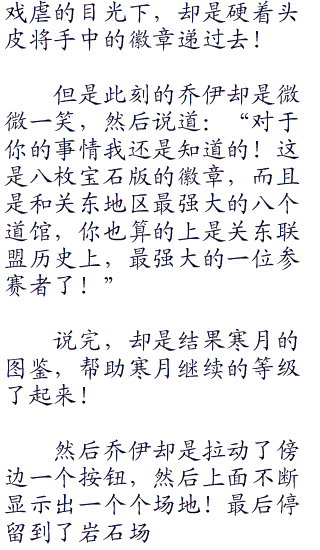 戏虐的目光下，却是硬着头
皮将手中的徽章递过去！
但是此刻的乔伊却是微
微一笑，然后说道：“对于
你的事情我还是知道的！这
是八枚宝石版的徽章，而且
是和关东地区最强大的八个
道馆，你也算的上是关东联
盟历史上，最强大的一位参
赛者了！”
说完，却是结果寒月的
图鉴，帮助寒月继续的等级
了起来！
然后乔伊却是拉动了傍
边一个按钮，然后上面不断
显示出一个个场地！最后停
留到了岩石场